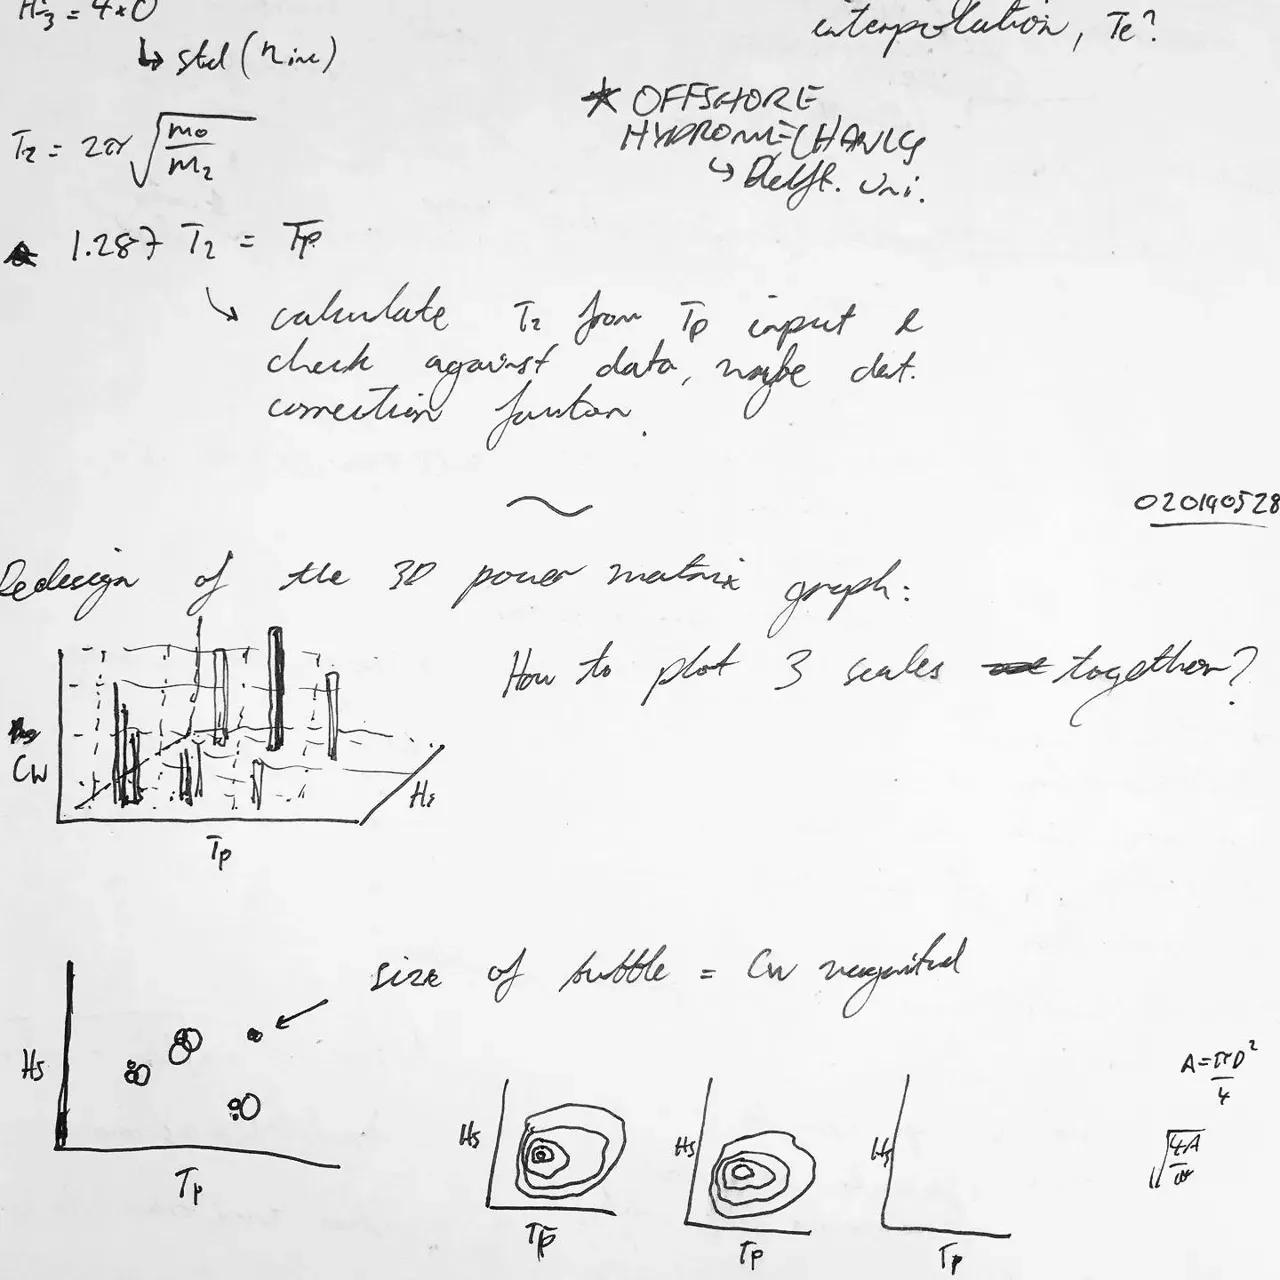 H⅓ = 4×σ
↳ std (ηinc)
interpolation, Te?
* OFFSHORE
HYDROMECHANICS
↳ Delft. Uni.
T2 = 2π √(m0/m2)
1.287 T2 = Tp
↘ calculate T2 from Tp input &
check against data, maybe det.
correction function.
~
020190528
Redesign of the 3D power matrix graph:
How to plot 3 scales together?
CW
Hs
Tp
size of bubble = CW magnitud
Hs
Tp
Hs
Tp
Hs
Tp
Hs
Tp
A = πD²/4
√(4A/π)